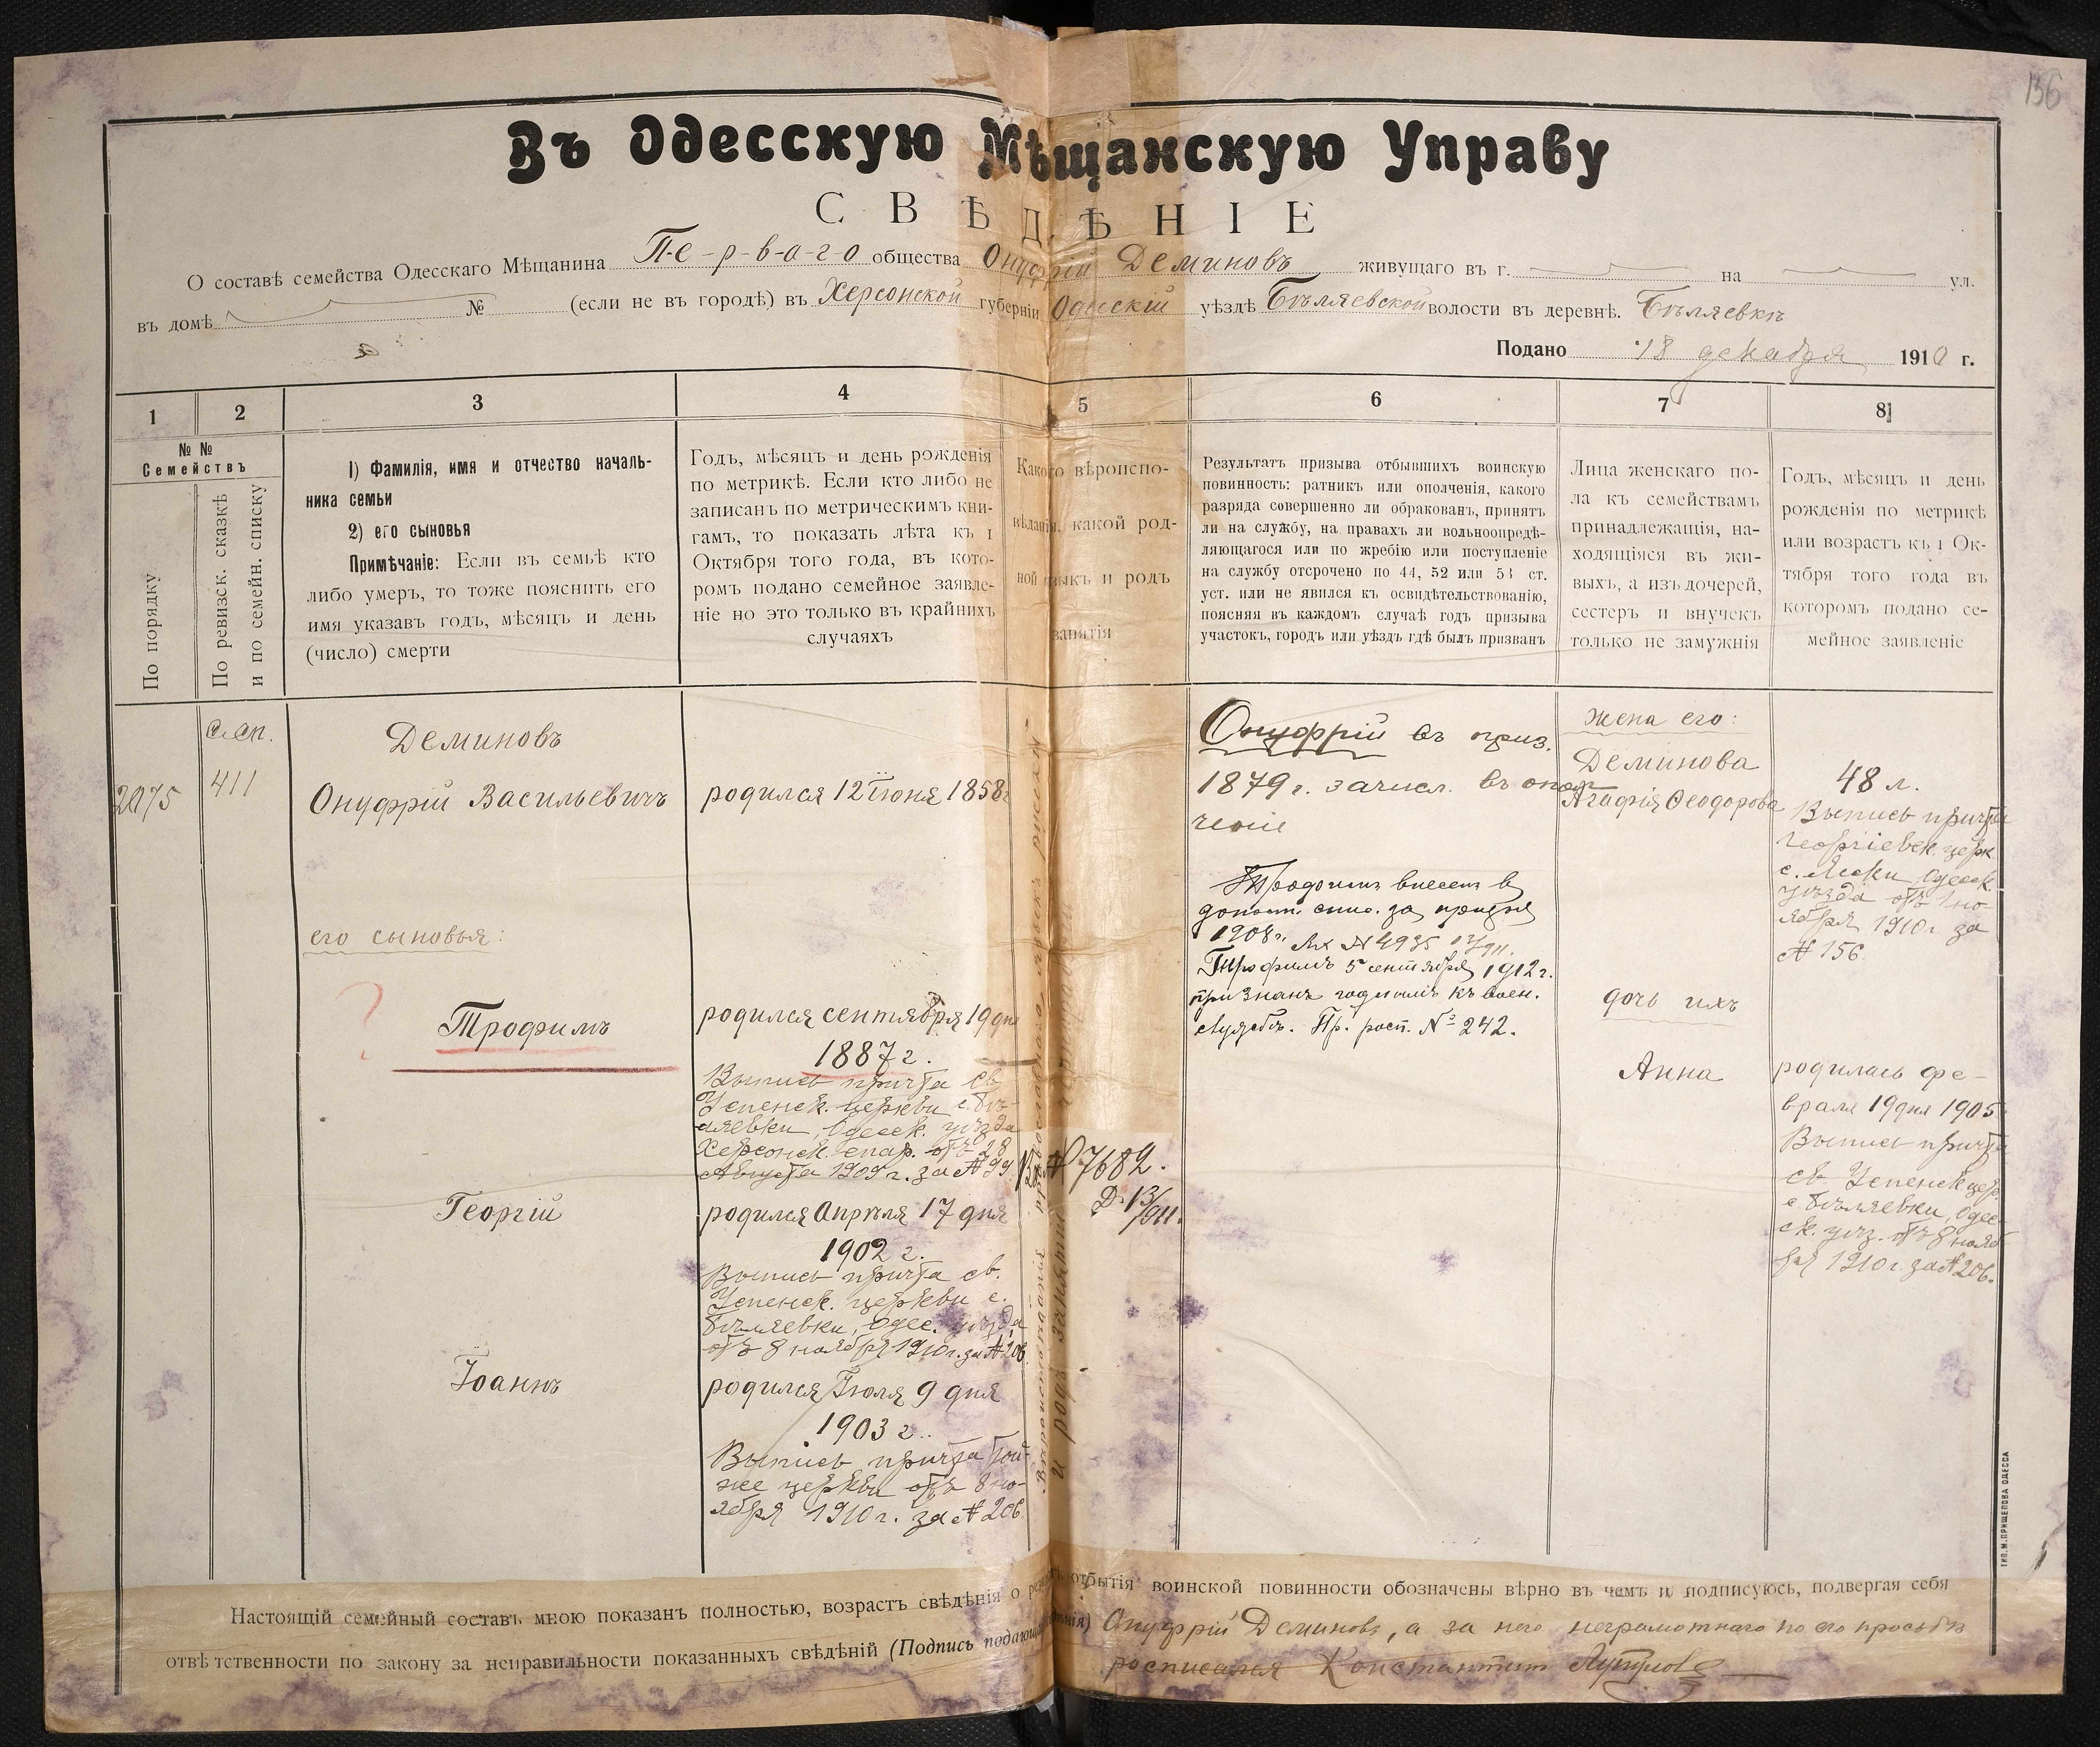 136
Въ Одесскую Мѣщанскую Управу
СВѢДѢНІЕ
О составѣ семейства Одесскаго Мѣщанина П-е-р-в-а-г-о общества Онуфрій Деминовъ живущаго въ г. на ул.
въ домѣ № (если не въ городѣ) въ Херсонской губерніи Одесскій уѣздѣ Бѣляевской волости въ деревнѣ. Бѣляевкѣ
Подано 18 декабря 1910 г.
1 2 3 4 5 6 7 8
№ №
Семействъ
По порядку
По ревизск. сказкѣ
и по семейн. списку
1) Фамилія, имя и отчество началь-
ника семьи
2) его сыновья
Примѣчаніе: Если въ семьѣ кто
либо умеръ, то тоже пояснить его
имя указавъ годъ, мѣсяцъ и день
(число) смерти
Годъ, мѣсяцъ и день рожденія
по метрикѣ. Если кто либо не
записанъ по метрическимъ кни-
гамъ, то показать лѣта къ 1
Октября того года, въ кото-
ромъ подано семейное заявле-
ніе но это только въ крайнихъ
случаяхъ
Какого вѣроиспо-
вѣданія, какой род-
ной языкъ и родъ
занятія
Результатъ призыва отбывшихъ воинскую
повинность: ратникъ или ополченія, какого
разряда совершенно ли обракованъ, принятъ
ли на службу, на правахъ ли вольноопредѣ-
ляющагося или по жребію или поступленіе
на службу отсрочено по 44, 52 или 53 ст.
уст. или не явился къ освидѣтельствованію,
поясняя въ каждомъ случаѣ годъ призыва
участокъ, городъ или уѣздъ гдѣ былъ призванъ
Лица женскаго по-
ла къ семействамъ
принадлежащія, на-
ходящіяся въ жи-
выхъ, а изъ дочерей,
сестеръ и внучекъ
только не замужнія
Годъ, мѣсяцъ и день
рожденія по метрикѣ
или возрастъ къ 1 Ок-
тября того года въ
которомъ подано се-
мейное заявленіе
2075
411
Деминовъ
Онуфрій Васильевичъ
родился 12 Іюня 1858г
его сыновья:
?
Трофимъ
родился сентября 19 дня
1887 г.
Выпись причта св.
Успенск. церкви с. Бѣ-
ляевки, Одесск. уѣзда
Херсонск. епар. отъ 28
Августа 1909 г. за № 99.
Георгій
родился Апрѣля 17 дня
1902 г.
Выпись причта св.
Успенск. церкви с.
Бѣляевки, Одес. уѣзда
отъ 8 ноября 1910 г. за № 206.
Іоаннъ
родился Іюля 9 дня
1903 г.
Выпись причта той-
же церкви отъ 8 но-
ября 1910 г. за № 206
Вѣроисповѣданія православнаго
и родъ занятій
Вх № 7682.
Д 13/911.
Онуфрій въ приз.
1879 г. зачисл. въ опол-
ченіе
Трофимъ внесенъ в
допол. спис. за призыв
1908 г. Вх № 4935
Трофимъ 5 сентября 1912 г.
признанъ годнымъ къ воен.
службѣ. Пр. росп. № 242.
жена его:
Деминова
Агафія Ѳеодорова
48 л.
Выпись причта
Георгіевск. церк
с. Яски Одесск.
уѣзда отъ 1 но-
ября 1910 г. за
№ 156
дочь ихъ
Анна
родилась фе-
враля 19 дня 1905
Выпись причта
св Успенск цер.
с. Бѣляевки, Одес-
ск. уѣз. отъ 8 нояб
ря 1910 г. за № 206.
Настоящій семейный составъ мною показанъ полностью, возрастъ свѣдѣнія о отбытія воинской повинности обозначены вѣрно въ чемъ и подписуюсь, подвергая себя
отвѣтственности по закону за неправильности показанныхъ свѣдѣній (Подпись Онуфрій Деминовъ, а за него неграмотнаго по его просьбѣ
росписался Константинъ
ТИП. М. ПРИЩЕПОВА ОДЕССА